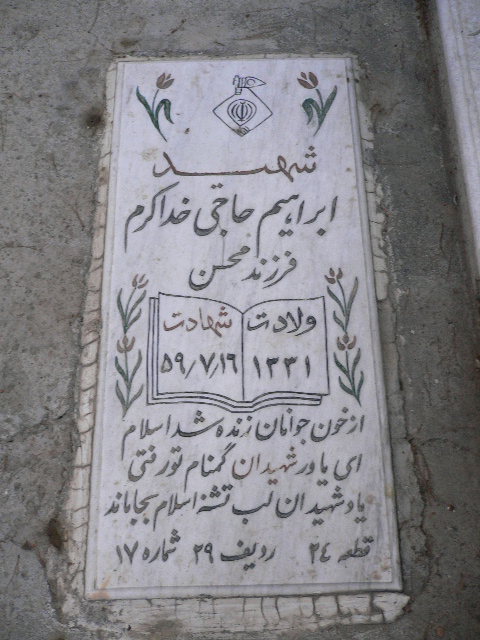 شهید
ابراهیم حاجی خداکرم
فرزند محسن
ولادت
۱۳۳۱
شهادت
۵۹/۷/۱۶
از خون جوانان زنده شد اسلام
ای یاور شهیدان گمنام تو رفتی
یاد شهیدان لب تشنه اسلام بجا ماند
قطعه ۲۴ ردیف ۲۹ شماره ۱۷